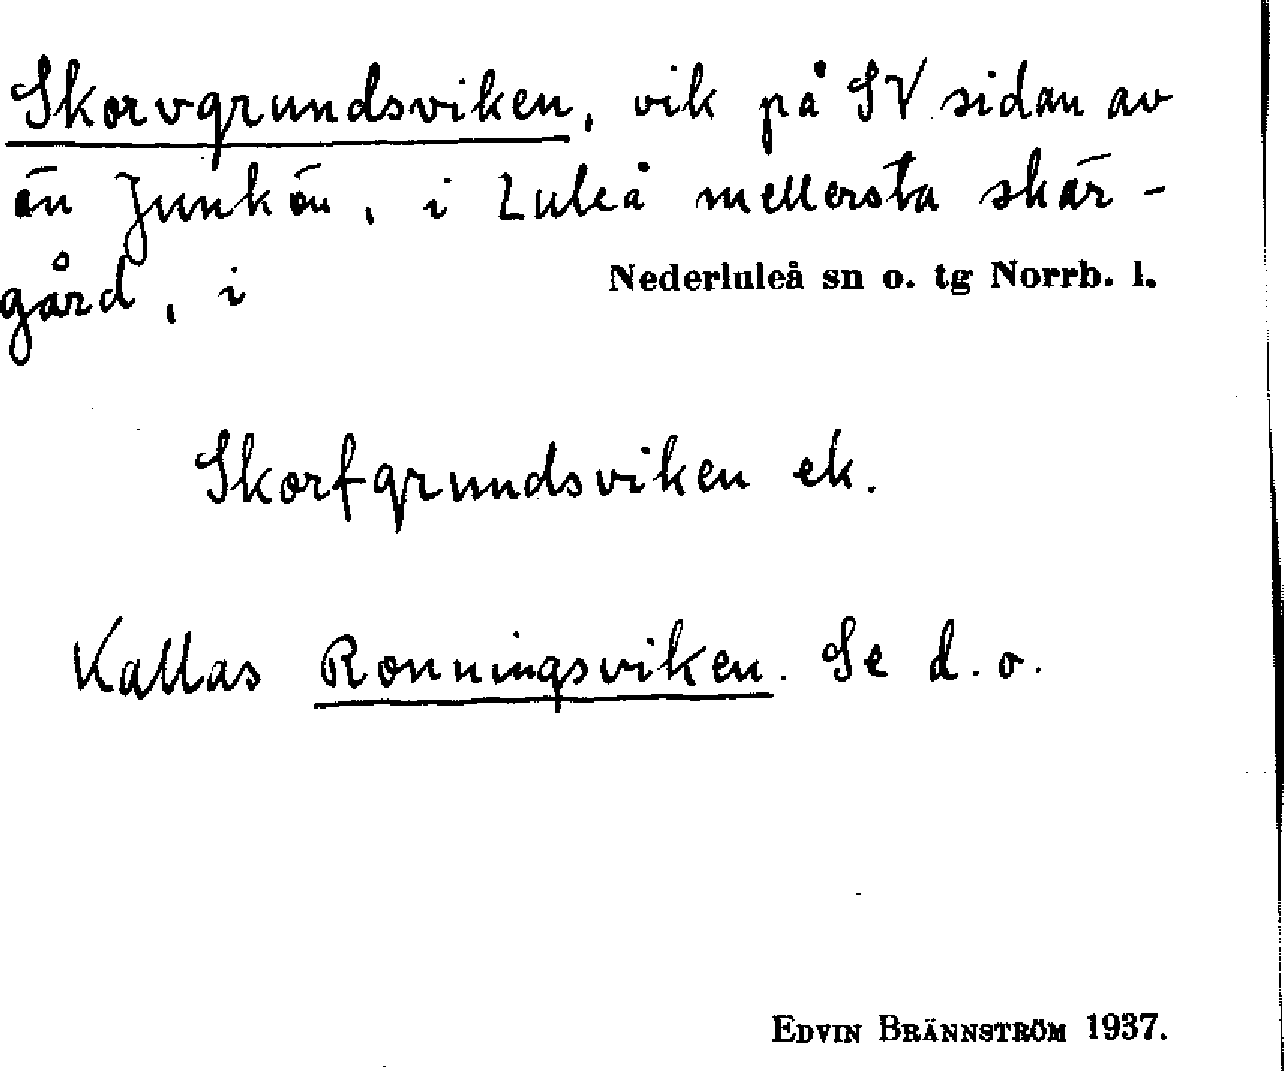 Skorvgrundsviken, vik på SV sidan av
ön Junkön, i Luleå mellersta skär-
gård, i Nederluleå sn o. tg Norrb. l.
Skorfgrundsviken ek.
Kallas Ronningsviken. Se d. o.
EDVIN BRÄNNSTRÖM 1937.